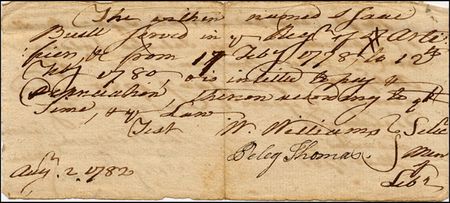 The within named Isaac
Buell served in y Regt of Arti
ficers & from 17 Feby 1778 to 12th
Feby 1780 & is intitled to pay &
Depreciation, thereon according to
Time, & y Law
Test W. Williams Selec
Peleg Thomas Men
of
Augt. 2. 1782 Lebn